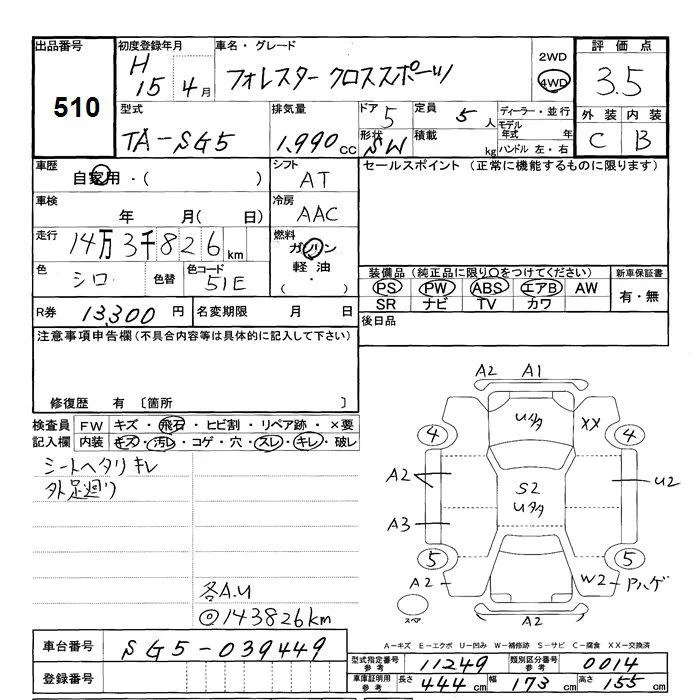 出品番号 初度登録年月 車名・グレード 評価点
510 H15 4月 フォレスター クロススポーツ 2WD 4WD 3.5
型式 排気量 ドア 定員 ディーラー・並行 外装 内装
TA-SG5 1.990cc 5 5人 モデル年式 年式 C B
形状 SW 積載 kg ハンドル 左・右
車歴 自家用・( ) シフト AT セールスポイント (正常に機能するものに限ります)
車検 年 月( 日) 冷房 AAC
走行 14万3千826km 燃料 ガソリン 軽油・( )
色 シロ 色替 色コード 51E 装備品 (純正品に限り○をつけてください) 新車保証書
PS PW ABS エアB AW 有・無
SR ナビ TV カワ
R券 13,300円 名変期限 月 日 後日品
注意事項申告欄(不具合内容等は具体的に記入して下さい)
修復歴 有 〔箇所 〕
検査員 FW キズ・飛石・ヒビ割・リペア跡・×要
記入欄 内装 キズ・汚レ・コゲ・穴・スレ・キレ・破レ
シートヘタリ キレ
外足廻り
各A.U
◎143826km
A2 A1
Uタタ XX
4 4
A2 U2
S2
Uタタ
A3
5 5
A2 W2 Pハゲ
スペア A2
A-キズ E-エクボ U-凹み W-補修跡 S-サビ C-腐食 XX-交換済
車台番号 SG5-039449
型式指定番号 参考 11249 類別区分番号 参考 0014
登録番号
車庫証明用 参考 長さ 444cm 幅 173cm 高さ 155cm